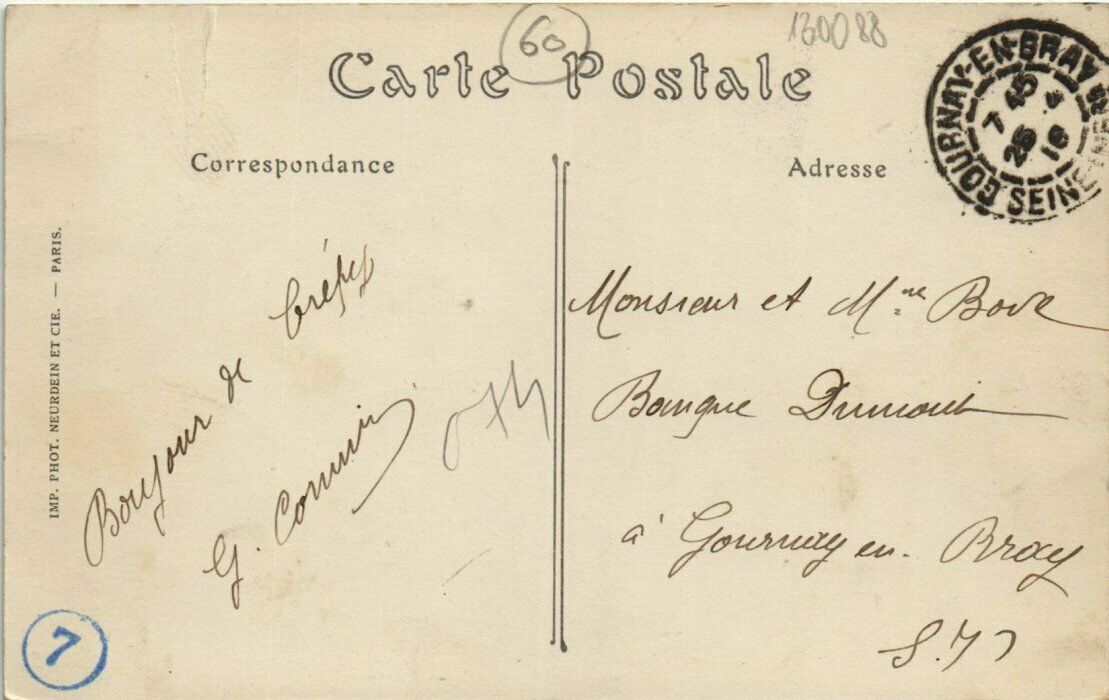 60
130088
Carte Postale
GOURNAY-EN-BRAY
7 45
25 4
10
SEINE INF
Correspondance
Adresse
IMP. PHOT. NEURDEIN ET CIE. — PARIS.
Bonjour de Crépy
G.
Monsieur et Mme
Banque Dumont
à Gournay en Bray
S. I
7